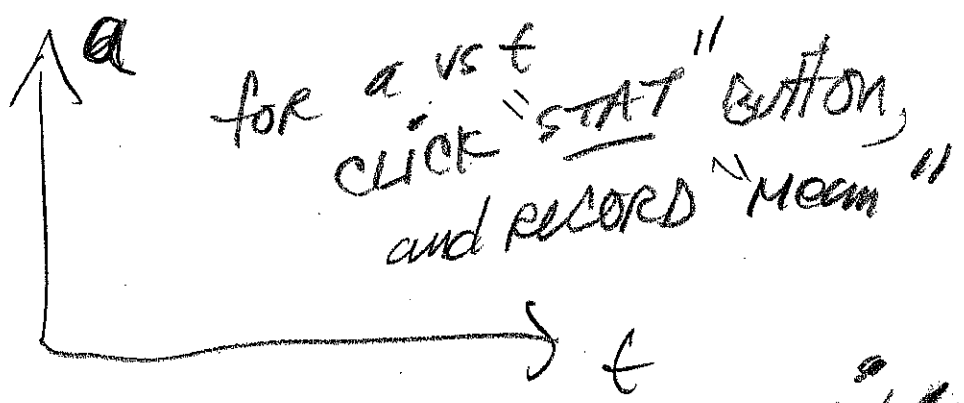 a
for a vs t
click "STAT" Button,
and RECORD "Mean"
t